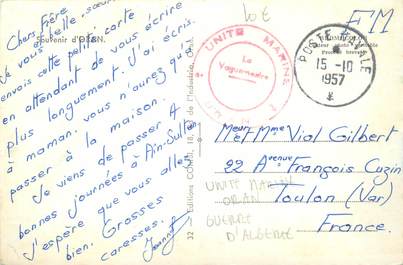 Souvenir d'ORAN.
Chers Frère
et belle sœur
Je vous
envois cette petite carte
en attendant de vous écrire
plus longuement. J'ai écris
à maman. vous n'aurez qu'à
passer à la maison.
Je viens de passer 4
bonnes journées à Ain-Sulta
j'espère que vous allez
bien. Grosses
caresses.
32 Editions
de l'Industrie, Oran
UNITÉ MARINE
Le
Vaguemestre
FM
POSTE NAVALE
15-10
1957
Meur et Mme Vial Gilbert
22 Avenue François Cuzin
Toulon (Var)
France.
UNITE MARIN
ORAN
GUERRE
D'ALGERIE